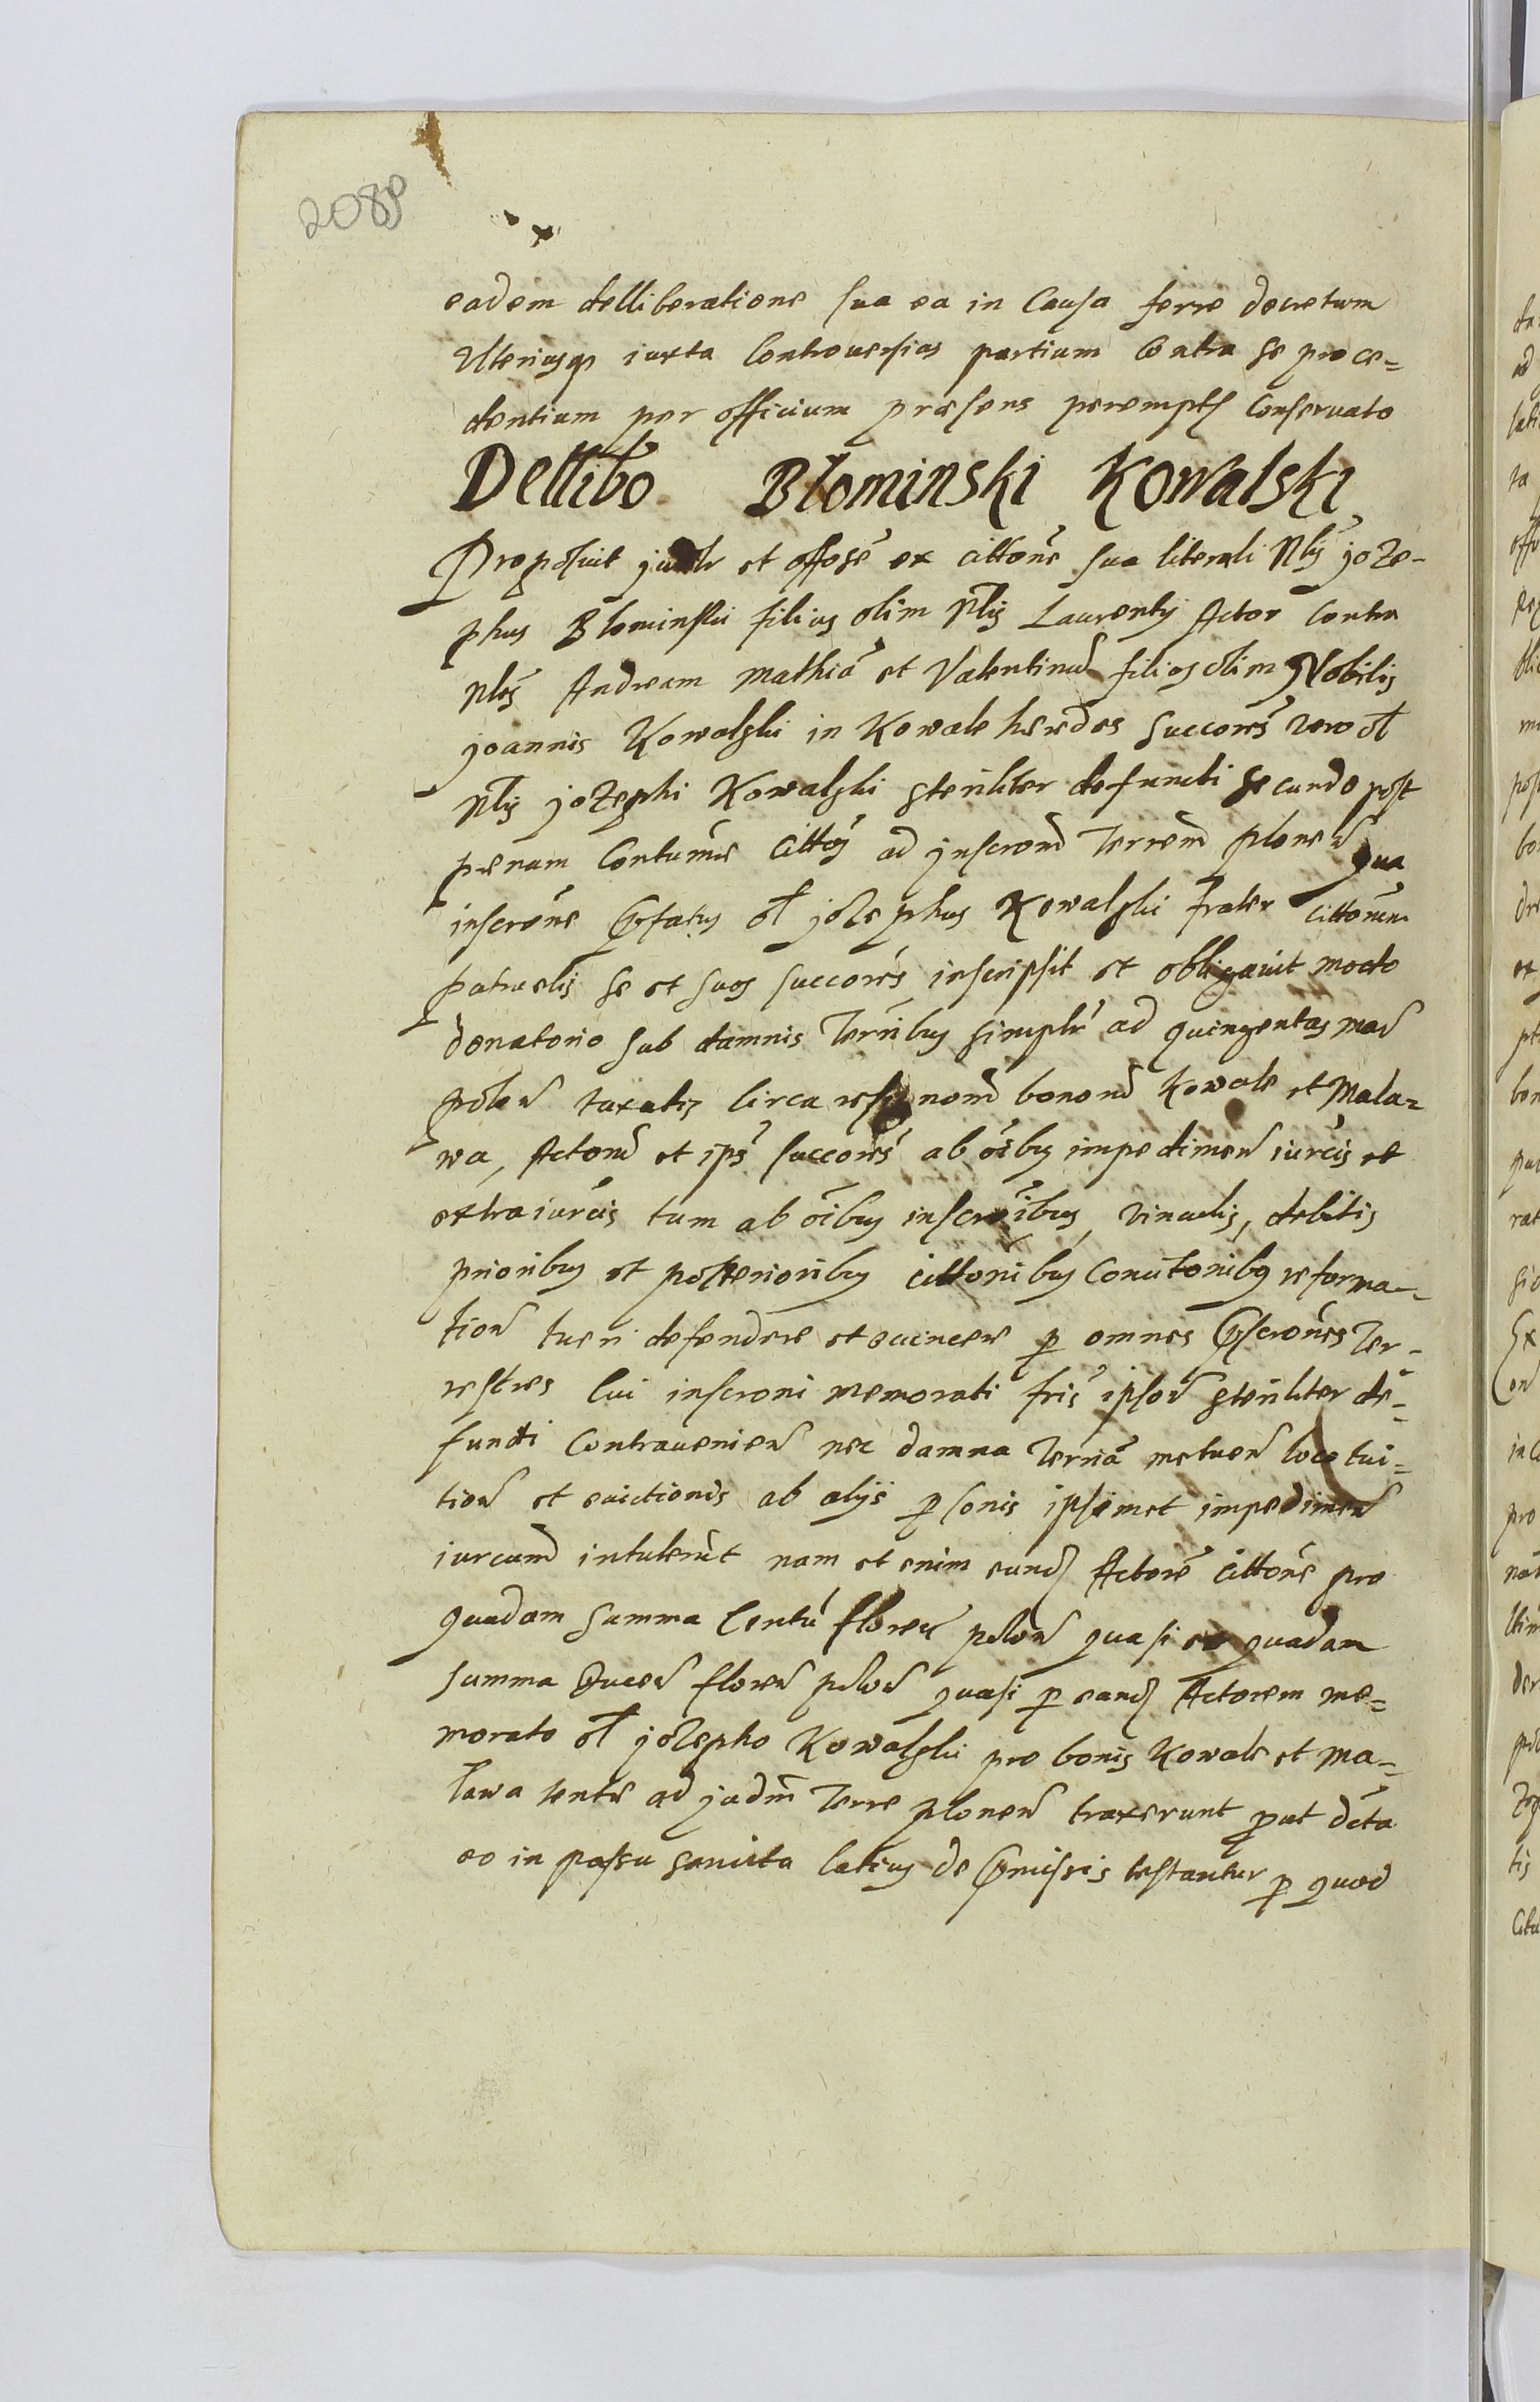 208v
eadem delliberatione sua ea in Causa ferre decretum
Ulteriusqz iuxta Controuersias partium Contra se proce=
dentium per officium præsens perempts Conseruato
Dellibo Blominski Kowalski
Proposuit et offose ex cittone sua literali Nlis joze-
phus Blominski filius olim Nlis Laurentij Actor Contra
Nles Andream Mathia et Valentinu filios olim Nobilis
joannis Kowalski in Kowale heredes succores vero ol
Nlis jozephi Kowalski steriliter defuncti secundo post
penam Contume Cittos ad jnscrom Terrem plonen qua
inscrone Prfatus ol jozephus Kowalski frater cittorum
patruelis se et suos succores inscripsit et obligauit modo
donatorio sub damnis Terribus simplr ad quingentas mar
polon taxatis Circa resignom bonorum Kowale et Mala=
wa, Actorem et ips succores ab oibus impedimen iurcis et
extraiurcis tum ab oibus inscroibus, vinculis, debitis
prioribus et posterioribus cittonibus Comittonibus reforma=
tion tueri defendere et euincere p omnes Prscrones Ter=
restres Cui inscroni memorati fris ipsor steriliter de=
functi Contrauenien nec damna Terria metuen loco tui=
tion et euictionis ab alijs psonis ipsimet impedimen
iurcum intulerut nam et enim eund Actore cittone pro
quadam summa Centu floren polon quasi ex quadam
summa Ducen floren polon quasi p eand Actorem me=
morato ol jozepho Kowalski pro bonis Kowale et Ma=
lawa tente ad judm Terre plonen traxerunt put dcta
eo in passu sancita latius de Prmissis testantur p quod